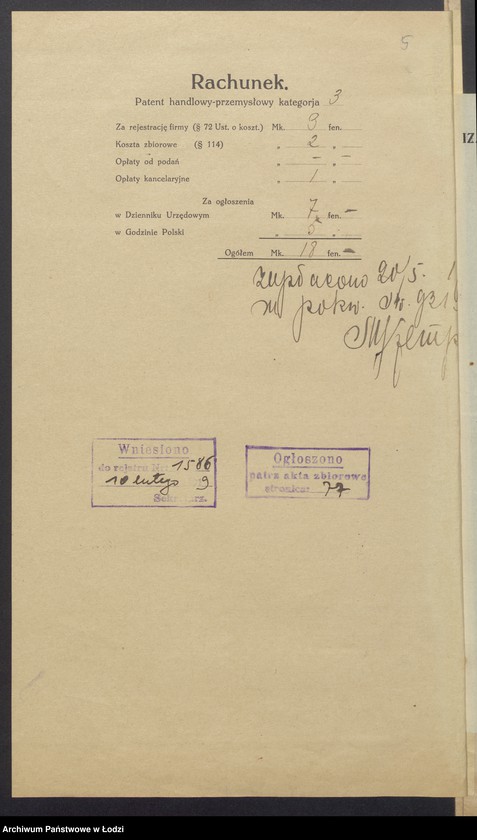 5
Rachunek.
Patent handlowy-przemysłowy kategorja 3
Za rejestrację firmy (§ 72 Ust. o koszt.) Mk. 9 fen.
Koszta zbiorowe (§ 114) „ 2 „
Opłaty od podań „ — „ —
Opłaty kancelaryjne „ 1 „
Za ogłoszenia
w Dzienniku Urzędowym Mk. 7 fen. —
w Godzinie Polski „ 5 „
Ogółem Mk. 18 fen. —
Zapłacono 20/5.
pokw. 921
Wniesiono
do rejstru Nr. 1586
10 lutego 9
Sekretarz.
Ogłoszono
patrz akta zbiorowe
stronica: 77
IZ.
Archiwum Państwowe w Łodzi